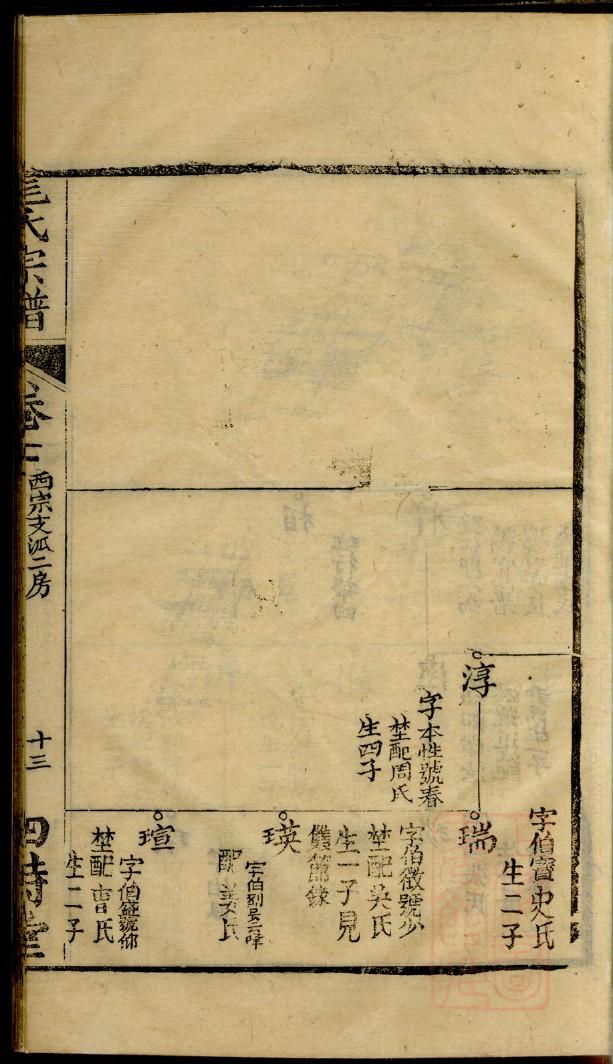 字伯寳史氏
生二子
淳
字本性號春
埜配周氏
生四子
瑞
字伯徵號少
埜配吳氏
生一子見
儀節錄
瑛
配姜氏
瑄
字伯盛號仰
埜配曹氏
生二子
氏宗譜
卷十
西宗支派二房
十三
四時堂